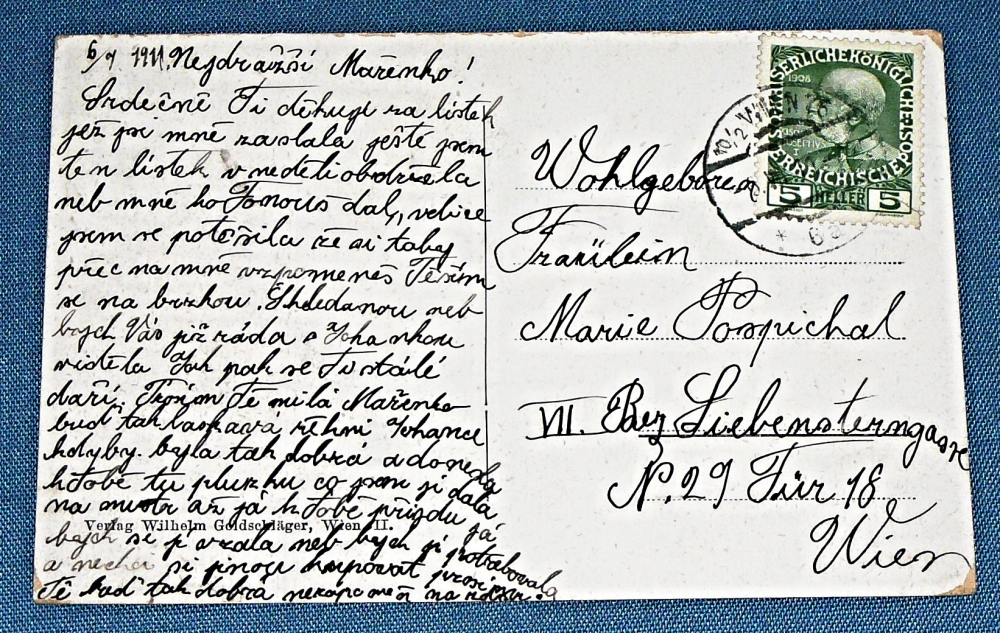 6/7 1911. Nejdražší Mařenko!
Srdečně Ti děkuji za lístek
jež jsi mně zaslala ještě jsem
ten lístek v neděli obdržela
neb mně ho Tonous dal, velice
jsem se potěšila že si taky
přec na mně vzpomeneš Těším
se na brzkou Shledanou neb
bych Vás již ráda s Johankou
viděla Jak pak se Ti stálé
daří. Prosím Tě milá Mařenko
buď tak laskavá řekni Johance
kdyby byla tak dobrá a donesla
k tobě tu pluzku co jsem ji dala
na až já k Tobě přijdu já
bych si ji vzala neb bych ji potřebovala
a nechci si jinou kupovat prosím
Tě buď tak dobrá na
Verlag Wilhelm Goldschläger, Wien II.
KAISERLICHE KÖNIGLICHE ÖSTERREICHISCHE POST
1908
5 HELLER 5
WIEN
Wohlgeboren
Fräulein
Marie Pospichal
VII. Bez Liebensterngasse
N. 29 Tür 18
Wien